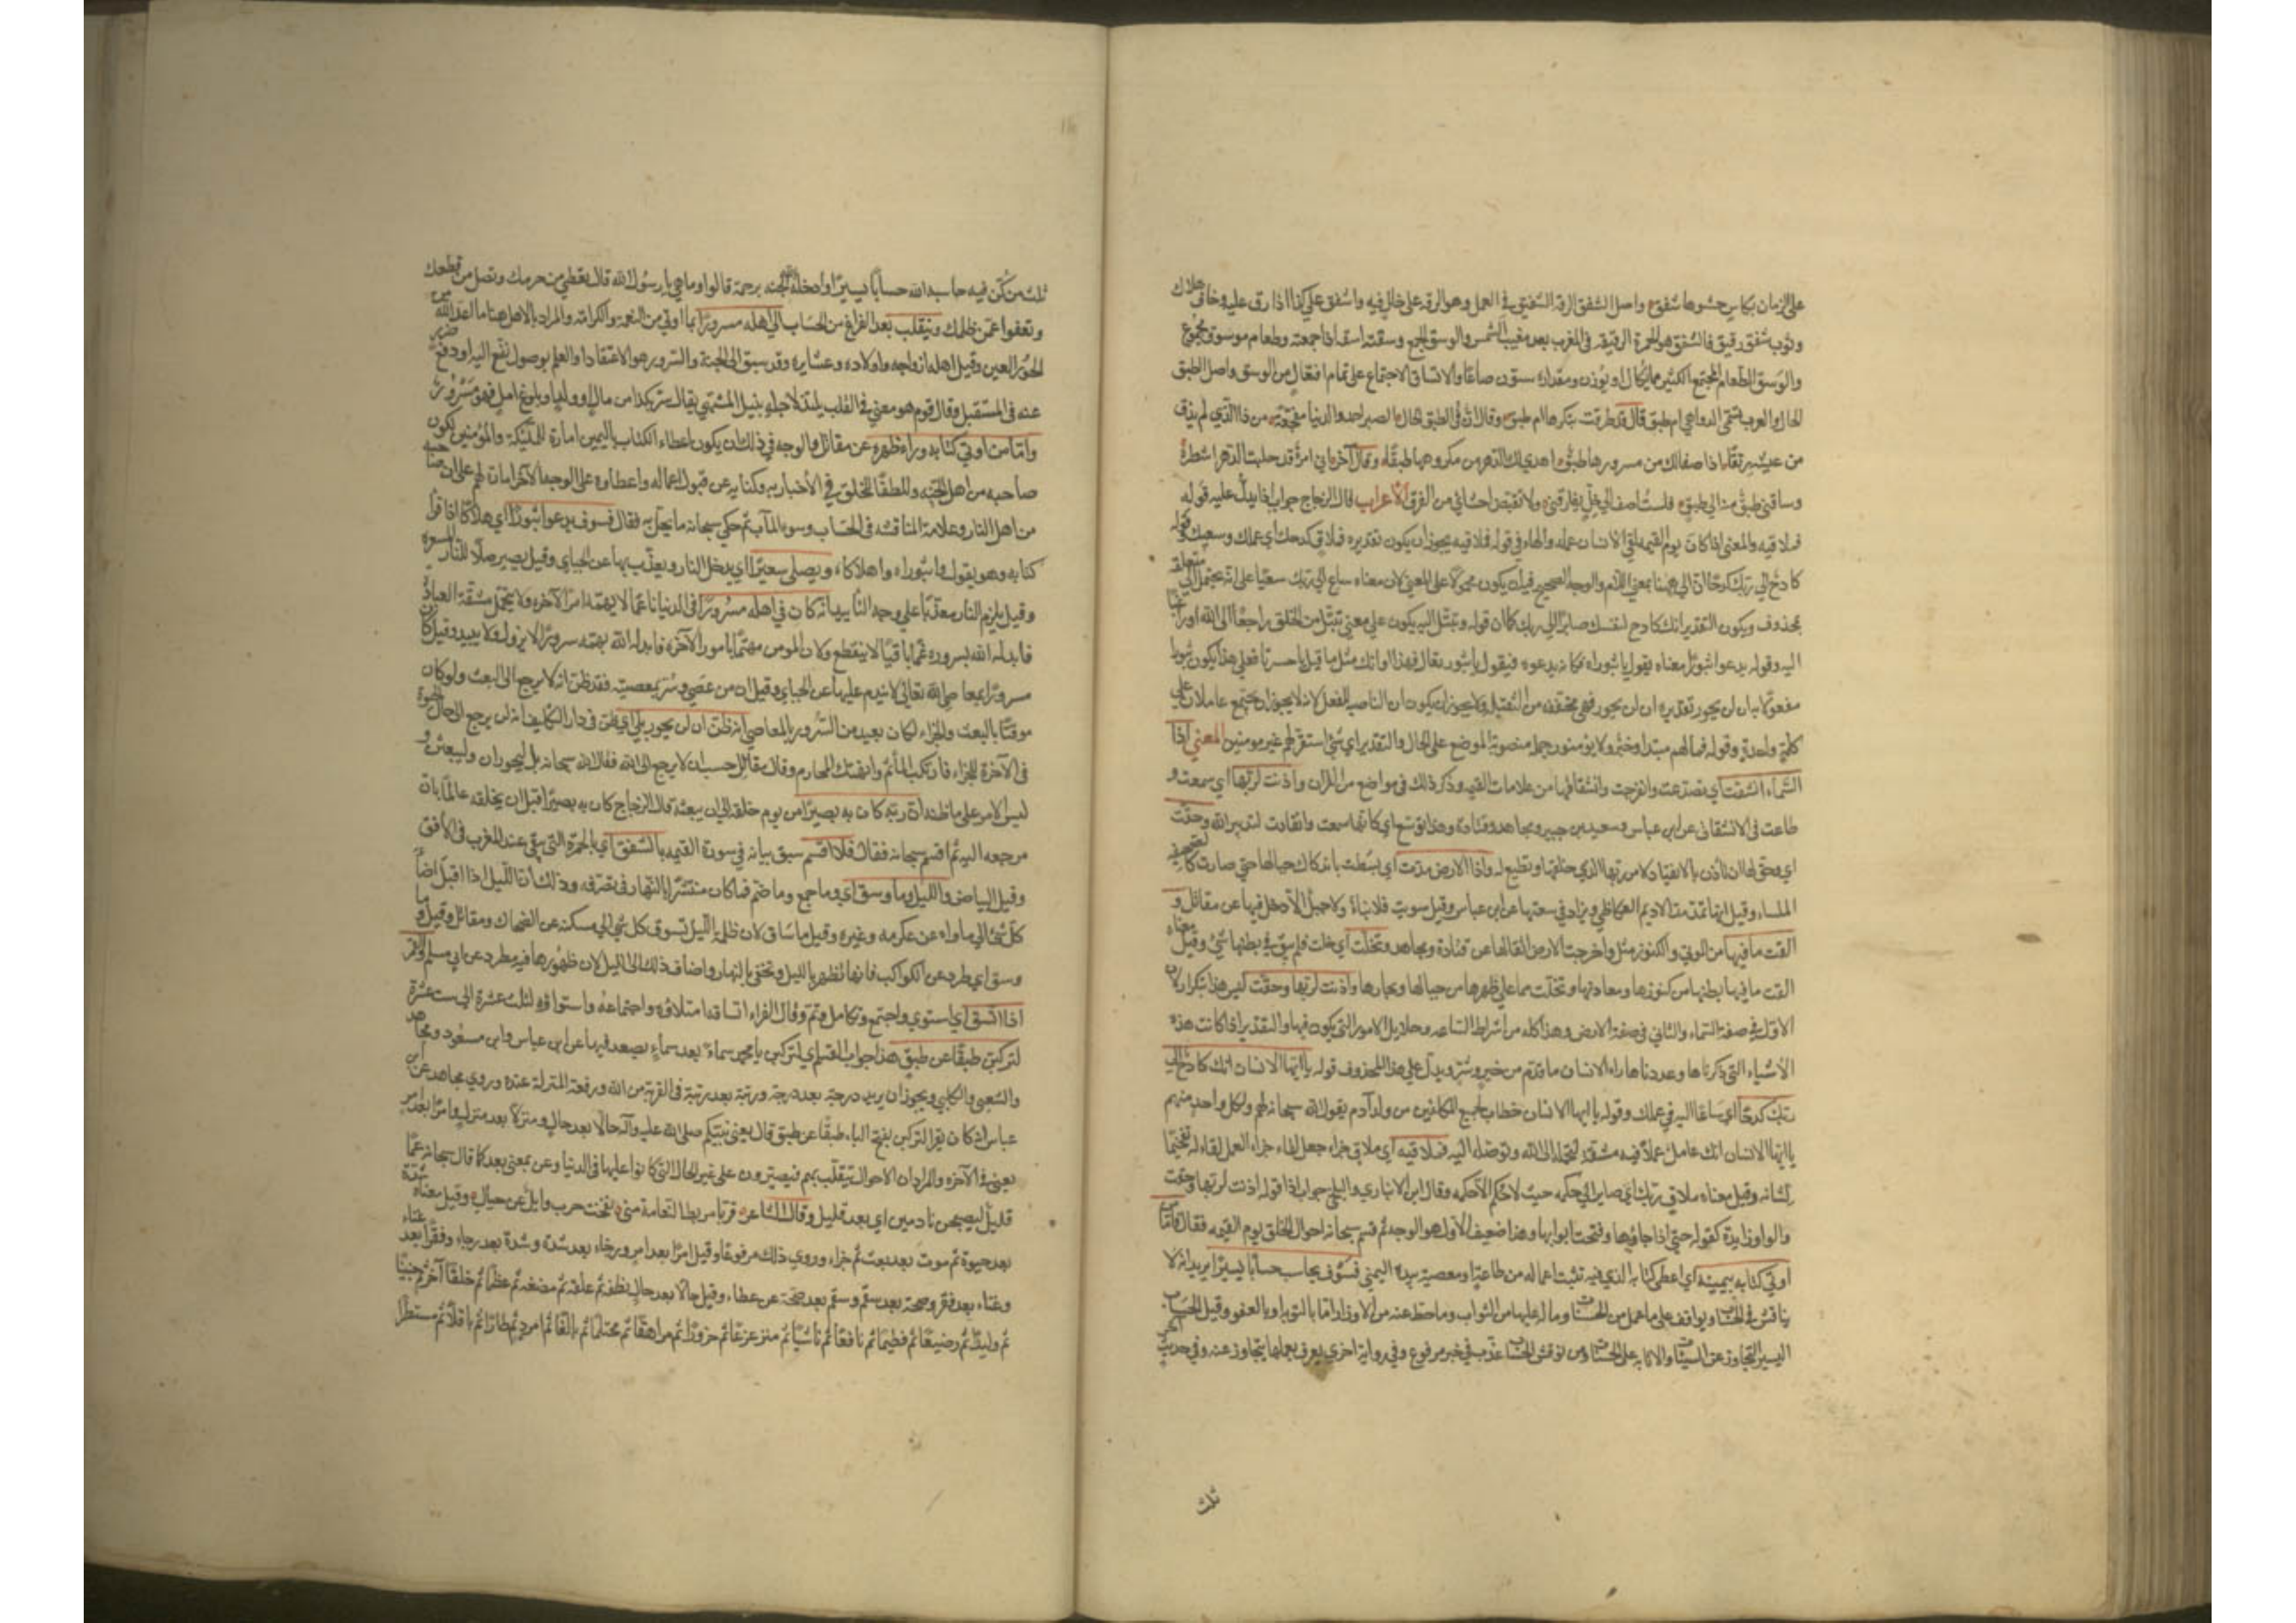 على الزمان بكاس حشوها شفق واصل الشفق الرقة الشفيق في العمل وهو الرقه على خلل فيه واشفق على كذا اذا رق عليه وخاف هلاك
وثوب شفق رقيق فالشفق هو الحمرة الرقيقه في المغرب بعد مغيب الشمس والوسق الجمع وسقته اسقه اذا جمعته وطعام موسوق مجموع
والوسق الطعام المجتمع الكثير مما يكال او يوزن ومقداره ستون صاعًا والاتساق الاجتماع على تمام افتعال من الوسق واصل الطبق
الحال والعرب تسمي الدواهي ام طبق قال قد طرقت ببكرها ام طبق وقال ان في الطبق الحال الصبر احمد والدنيا مفجعة من ذا الذي لم يذق
من عيشه رنقا اذا صفا لك من مسرورها طبق اهدى لك الدهر من مكروهها طبقا وقال آخر اني امرؤ قد حلبت الدهر اشطره
وساقني طبق منه الى طبق فلست اصفى الى خل يفارقني ولا تقبض احشائي من الفرق الاعراب قال الزجاج جواب اذا يدل عليه قوله
فملاقيه والمعنى اذا كان يوم القيمه لقي الانسان عمله والهاء في قوله فملاقيه يجوز ان يكون تقديره فملاق كدحك اي عملك وسعيك وقوله
كادح الى ربك كدحا الى ههنا بمعنى اللام والوجه الصحيح فيه ان يكون محمولا على المعنى لان معناه ساع الى ربك سعيًا على انه يحتمل الى متعلقه
بمحذوف ويكون التقدير انك كادح لنفسك صائرا الى ربك كما ان قوله وتبتل اليه يكون على معنى تبتل من الخلق راجعًا الى الله او راغبا
اليه وقوله يدعوا ثبورًا معناه يقول يا ثبوراه فكانه يدعوه فيقول يا ثبور تعال فهذا اوانك مثل ما قيل يا حسرتا فعلى هذا يكون ثبورا
مفعولا به ان لن يحور تقديره ان لن يحور فهي مخففه من الثقيلة ولا يجوز ان يكون ان الناصبه للفعل لانه لا يجوز ان يجتمع عاملان على
كلمة واحدة وقوله فما لهم مبتدا وخبر ولا يؤمنون جمله منصوبة الموضع على الحال والتقدير اي شيء استقر لهم غير مومنين المعنى اذا
السماء انشقت اي تصدعت وانفرجت وانشقاقها من علامات القيمه وذكر ذلك في مواضع من القرآن واذنت لربها اي سمعت و
طاعت في الانشقاق عن ابن عباس وسعيد بن جبير ومجاهد وقتادة وهذا توسع اي كانها سمعت وانقادت لتدبير الله وحقت
اي وحق لها ان تاذن بالانقياد لامر ربها الذي خلقها وتطيع له واذا الارض مدت اي بسطت باندكاك جبالها حتى صارت كالصحيفه
الملساء وقيل انها تمد مد الاديم العكاظي ويزاد في سعتها عن ابن عباس وقيل سويت فلا بناء ولا جبل الا دخل فيها عن مقاتل و
القت ما فيها من الموتى والكنوز مثل واخرجت الارض اثقالها عن قتادة ومجاهد وتخلت اي خلت فلم يبق في بطنها شيء وقيل معناه
القت ما فيها بطنها من كنوزها ومعادنها وتخلت مما على ظهرها من جبالها وبحارها واذنت لربها وحقت ليس هذا بتكرار لان
الاول في صفة السماء والثاني في صفة الارض وهذا كله من اشراط الساعه وجلايل الامور التي يكون فيها والتقدير اذا كانت هذه
الاشياء التي ذكرناها وعددناها راى الانسان ما قدم من خير وشر ويدل على هذا المحذوف قوله يا ايها الانسان انك كادح الى
ربك كدحًا اي ساع اليه في عملك وقوله يا ايها الانسان خطاب لجميع المكلفين من ولد آدم يقول الله سبحانه لهم ولكل واحد منهم
يا ايها الانسان انك عامل عملا فيه مشقة لتحمله الى الله وتوصله اليه فملاقيه اي ملاقي جزاءه جعل لقاء جزاء العمل لقاء له تفخيما
لشانه وقيل معناه ملاق ربك اي صاير الى حكمه حيث لا حكم الا حكمه وقال ابن الانباري والبلخي جواب اذا قوله اذنت لربها وحقت
والواو زايدة كقوله حتى اذا جاؤها وفتحت ابوابها وهذا ضعيف والاول هو الوجه ثم قسم سبحانه احوال الخلق يوم القيمه فقال فاما من
اوتي كتابه بيمينه اي اعطي كتابه الذي فيه تثبت اعماله من طاعة او معصية بيده اليمنى فسوف يحاسب حسابًا يسيرًا يريد انه لا
يناقش في الحساب ويواقف على ما عمل من الحسنات وما له عليها من الثواب وما حط عنه من الاوزار اما بالتوبه او بالعفو وقيل الحساب
اليسير التجاوز عن السيئات والاثابه على الحسنات ومن نوقش الحساب عذب في خبر مرفوع وفي رواية اخرى يعرف بعملها يتجاوز عنه وفي حديث اخر
ثلث
ثلث من كن فيه حاسبه الله حسابًا يسيرًا وادخله الجنه برحمته قالوا وما هي يا رسول الله قال تعطي من حرمك وتصل من قطعك
وتعفوا عمن ظلمك وينقلب بعد الفراغ من الحساب الى اهله مسرورًا بما اوتي من النعمة والكرامة والمراد بالاهل هنا ما اعد الله من
الحور العين وقيل اهله ازواجه واولاده وعشايره وقد سبق الى الجنة والسرور هو الاعتقاد او العلم بوصول نفع اليه او دفع ضرر
عنه في المستقبل وقال قوم هو معنى في القلب يلتذ لاجله بنيل المشتهى يقال سر بكذا من مال او ولد او بلوغ امل فهو مسرور
واما من اوتي كتابه وراء ظهره عن مقاتل والوجه في ذلك ان يكون اعطاء الكتاب باليمين امارة للملئكة والمؤمنين يكون
صاحبه من اهل الجنه ولطفًا للخلق في الأخبار به وكناية عن قبول اعماله واعطاوه على الوجه الآخر امارة لهم على ان صاحبه
من اهل النار وعلامة المناقشه في الحساب وسوء المآب ثم حكى سبحانه ما يحل به فقال فسوف يدعوا ثبورًا اي هلاكًا اذا قرأ
كتابه وهو يقول واثبوراه واهلاكاه ويصلى سعيرًا اي يدخل النار ويعذب بها عن الجبائي وقيل يصير صلاء للنار المسعره
وقيل يلزم النار معذبًا على وجه التأبيد انه كان في اهله مسرورًا في الدنيا ناعمًا لا يهمه امر الآخره ولا يتحمل مشقة العبادة
فابدله الله بسروره غمًّا باقيًا لا ينقطع وكان المومن مهتمًا بامور الآخره فابدله الله بهمه سرورًا لا يزول ولا يبيد وقيل كان
مسرورًا بمعاصي الله تعالى لا يندم عليها عن الجبائي وقيل ان من عصى وسر بمعصيته فقد ظن انه لا يرجع الى البعث ولو كان
موقنًا بالبعث والجزاء لكان بعيد من السرور بالمعاصي انه ظن ان لن يحور بلى اي ظن في دار التكليف انه لن يرجع الى حال الحيوة
في الآخرة للجزاء فارتكب المأثم وانتهك المحارم وقال مقاتل حسب ان لا يرجع الى الله فقال الله سبحانه بل ليحورن وليبعثن و
ليس الامر على ما ظنه ان ربه كان به بصيرًا من يوم خلقه الى ان يبعثه قال الزجاج كان به بصيرًا قبل ان يخلقه عالمًا بان
مرجعه اليه ثم اقسم سبحانه فقال فلا اقسم سبق بيانه في سورة القيمه بالشفق اي بالحمرة التي تبقى عند المغرب في الأفق
وقيل البياض والليل وما وسق اي وما جمع وما ضم مما كان منتشرًا بالنهار في تصرفه وذلك أن الليل اذا اقبل اضا
كل شيء الى ماواه عن عكرمه وغيره وقيل ما ساق لان ظلمة الليل تسوق كل شيء الى مسكنه عن الضحاك ومقاتل وقيل وما
وسق اي طرد عن الكواكب فانها تظهر بالليل وتخفى بالنهار واضاف ذلك الى الليل لان ظهورها فيه مطرد عن ابي مسلم والقمر
اذا اتسق اي استوى واجتمع وتكامل وتم وقال الفراء اتساقه امتلاؤه واجتماعه واستواؤه لثلث عشرة الى ست عشرة
لتركبن طبقًا عن طبق هذا جواب القسم اي لتركبن يا محمد سماء بعد سماءٍ تصعد فيها عن ابن عباس وابن مسعود ومجاهد
والشعبي والكلبي ويجوز ان يريد درجة بعد درجة ورتبة بعد رتبة في القربة من الله ورفعة المنزلة عنده وروى مجاهد عن ابن
عباس انه كان يقرا لتركبن بفتح الباء طبقًا عن طبق قال يعني نبيكم صلى الله عليه وآله حالًا بعد حال ومنزلًا بعد منزل وامرًا بعد امر
يعني في الآخره والمراد ان الاحوال تتقلب بهم فيصيرون على غير الحال التي كانوا عليها في الدنيا وعن بمعنى بعد كما قال سبحانه عمّا
قليل ليصبحن نادمين اي بعد قليل وقال الشاعر قربا مربط النعامة مني لقحت حرب وايل عن حيال وقيل معناه شدة
بعد حيوة ثم موت بعد بعث ثم جزاء وروى ذلك مرفوعًا وقيل امرًا بعد امر ورخاء بعد شدة وشدة بعد رخاء وفقرًا بعد غناء
وغناء بعد فقر وصحة بعد سقم وسقم بعد صحة عن عطاء وقيل حالا بعد حال نطفه ثم علقه ثم مضغه ثم عظمًا ثم خلقًا آخر ثم جنينًا
ثم وليدًا ثم رضيعًا ثم فطيمًا ثم يافعًا ثم ناشيًا ثم مترعرعًا ثم حزورًا ثم مراهقًا ثم محتلمًا ثم بالغًا ثم امرد ثم طارًا ثم باقلًا ثم مستطرًا